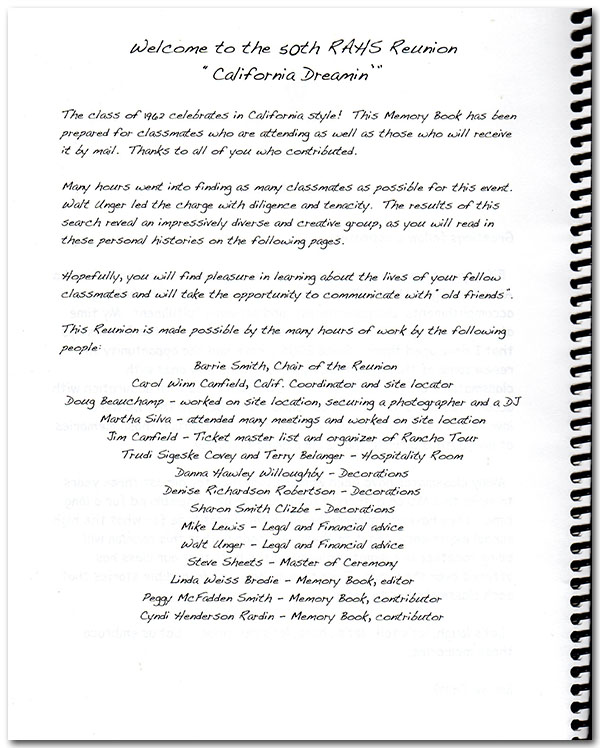 Welcome to the 50th RAHS Reunion
"California Dreamin'"
The class of 1962 celebrates in California style! This Memory Book has been
prepared for classmates who are attending as well as those who will receive
it by mail. Thanks to all of you who contributed.
Many hours went into finding as many classmates as possible for this event.
Walt Unger led the charge with diligence and tenacity. The results of this
search reveal an impressively diverse and creative group, as you will read in
these personal histories on the following pages.
Hopefully, you will find pleasure in learning about the lives of your fellow
classmates and will take the opportunity to communicate with "old friends".
This Reunion is made possible by the many hours of work by the following
people:
Barrie Smith, Chair of the Reunion
Carol Winn Canfield, Calif. Coordinator and site locator
Doug Beauchamp - worked on site location, securing a photographer and a DJ
Martha Silva - attended many meetings and worked on site location
Jim Canfield - Ticket master list and organizer of Rancho Tour
Trudi Sigeske Covey and Terry Belanger - Hospitality Room
Danna Hawley Willoughby - Decorations
Denise Richardson Robertson - Decorations
Sharon Smith Clizbe - Decorations
Mike Lewis - Legal and Financial advice
Walt Unger - Legal and Financial advice
Steve Sheets - Master of Ceremony
Linda Weiss Brodie - Memory Book, editor
Peggy McFadden Smith - Memory Book, contributor
Cyndi Henderson Rardin - Memory Book, contributor